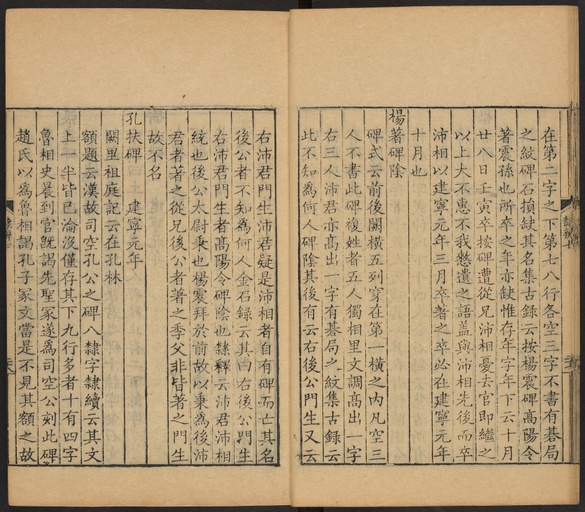 在第二字之下第七八行各空三字不書有碁局
之紋碑石損缺其名集古錄云按楊震碑高陽令
著震孫也所卒之年亦缺惟存年字年下云十月
廿八日壬寅卒按碑遭從兄沛相憂去官即繼之
以上天不惠不我憖遺之語蓋與沛相先後而卒
沛相以建寧元年三月卒著之卒必在建寧元年
十月也
楊著碑陰
碑式云前後闕橫五列穿在第一橫之內凡空三
人不書此碑複姓者五人獨相里文調高出一字
右三人沛君亦高出一字有碁局之紋集古錄云
此不知為何人碑陰其後有云右後公門生又云
右沛君門生沛君疑是沛相者自有碑而亡其名
後公者不知為何人金石錄云其曰右後公門生
右沛君門生者高陽令碑陰也隸釋云沛君沛相
統也後公太尉秉也楊震拜於前故以秉為後沛
君者著之從兄後公者著之季父非皆著之門生
故不名
孔扶碑 建寧元年
闕里祖庭記云在孔林
額題云漢故司空孔公之碑八隸字隸續云其文
上一半皆已淪沒僅存其下九行多者十有四字
魯相史晨到官旣謁先聖冢遂為司空公刻此碑
趙氏以為魯相謁孔子冢文當是不見其額之故